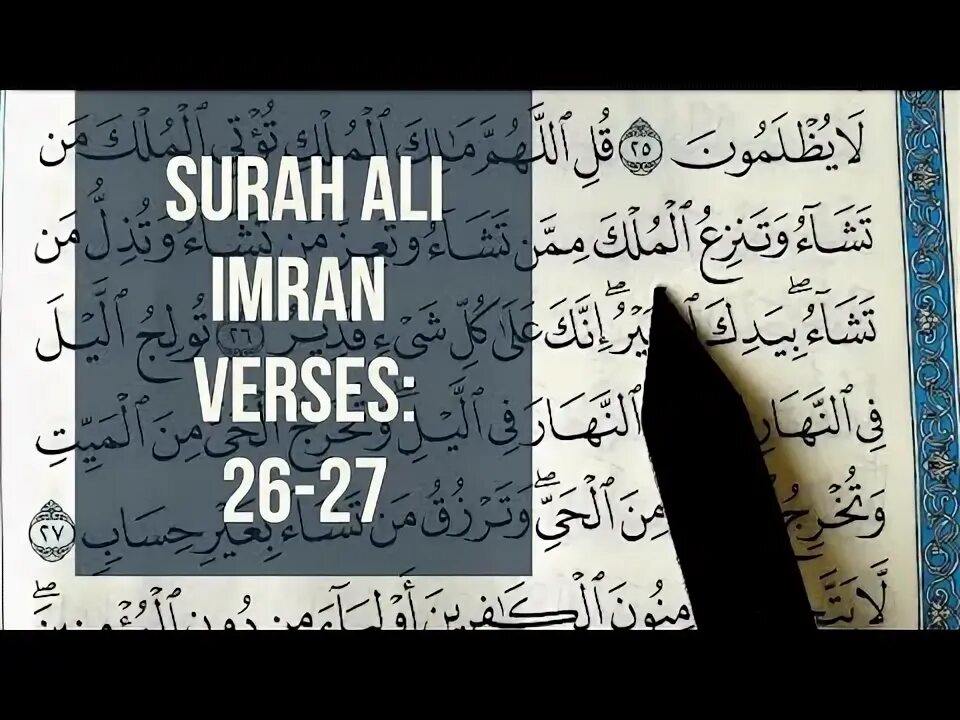 لَا يُظْلَمُونَ ٢٥ قُلِ ٱللَّهُمَّ مَٰلِكَ ٱلْمُلْكِ تُؤْتِي ٱلْمُلْكَ مَن
تَشَآءُ وَتَنزِعُ ٱلْمُلْكَ مِمَّن تَشَآءُ وَتُعِزُّ مَن تَشَآءُ وَتُذِلُّ مَن
تَشَآءُۖ بِيَدِكَ إِنَّكَ عَلَىٰ كُلِّ شَيْءٍ قَدِيرٌ ٢٦ تُولِجُ ٱلَّيْلَ
فِي ٱلنَّهَارِ ٱلنَّهَارَ فِي ٱلَّيْلِ وَتُخْرِجُ ٱلْحَيَّ مِنَ ٱلْمَيِّتِ
وَتُخْرِجُ مِنَ ٱلْحَيِّۖ وَتَرْزُقُ مَن تَشَآءُ بِغَيْرِ حِسَابٍ ٢٧
ٱلْكَٰفِرِينَ أَوْلِيَآءَ مِن دُونِ ٱلْمُؤْمِنِينَۖ
SURAH ALI
IMRAN
VERSES:
26-27